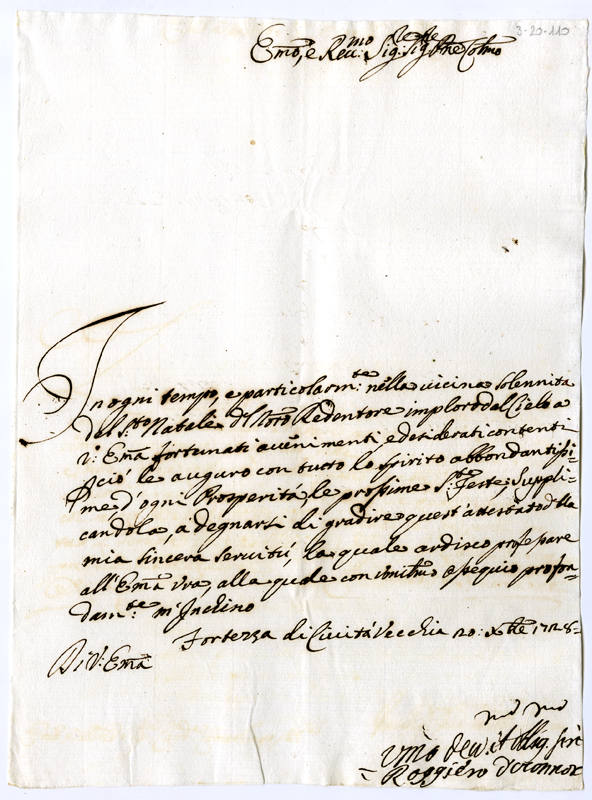 3-20-110
Emo, e Reu:mo Sig: Sig Pne Colmo
In ogni tempo, e particolarm:te nella vicina Solennita
del S:to Natale del Nro Redentore imploro dal Cielo a
V: Ema fortunati avenimenti, e desiderati contenti
Perció le auguro con tutto lo spirito abbondantissi-
me d'ogni Prosperitá, le prossime S:te Feste; Suppli-
candola, a degnarsi di gradire quest'attestato della
mia sincera servitú, la quale ardisco professare
all'Ema Vra, alla quale con umilmo ossequio profon-
dam:te m'Inchino
Fortezza di Civitá Vecchia 20: Xbre 1728-
Di V: Ema
Umo Deu: et Oblig: Sere
Roggiero d'Oconnor